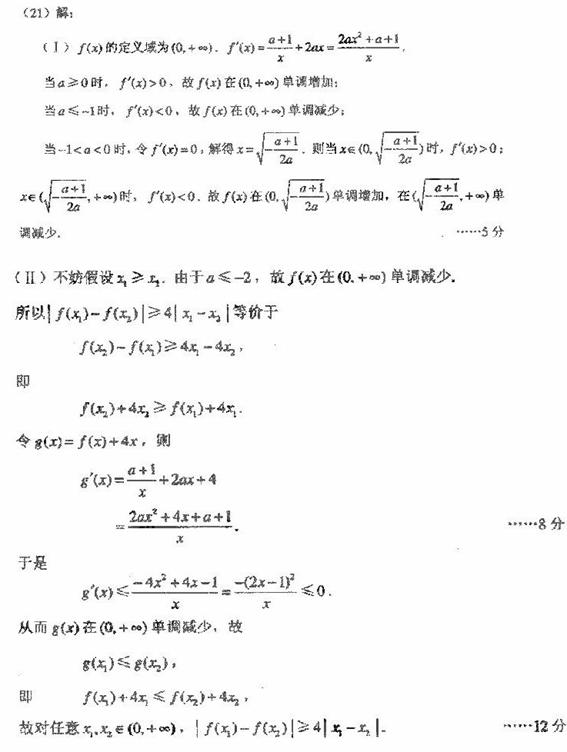 （21）解：
（Ⅰ） f(x)的定义域为(0,+∞). f′(x)=\frac{a+1}{x}+2ax=\frac{2ax²+a+1}{x},
当a≥0时, f′(x)>0, 故f(x)在(0,+∞)单调增加；
当a≤−1时, f′(x)<0, 故f(x)在(0,+∞)单调减少；
当−1<a<0时, 令f′(x)=0, 解得x=\sqrt{-\frac{a+1}{2a}}. 则当x∈(0,\sqrt{-\frac{a+1}{2a}})时, f′(x)>0；
x∈(\sqrt{-\frac{a+1}{2a}},+∞)时, f′(x)<0. 故f(x)在(0,\sqrt{-\frac{a+1}{2a}})单调增加, 在(\sqrt{-\frac{a+1}{2a}},+∞)单
调减少. ……5分
（Ⅱ）不妨假设x₁≥x₂. 由于a≤−2, 故f(x)在(0,+∞)单调减少.
所以|f(x₁)−f(x₂)|≥4|x₁−x₂|等价于
f(x₂)−f(x₁)≥4x₁−4x₂,
即
f(x₂)+4x₂≥f(x₁)+4x₁.
令g(x)=f(x)+4x, 则
g′(x)=\frac{a+1}{x}+2ax+4
=\frac{2ax²+4x+a+1}{x}. ……8分
于是
g′(x)≤\frac{-4x²+4x-1}{x}=\frac{-(2x-1)²}{x}≤0.
从而g(x)在(0,+∞)单调减少, 故
g(x₁)≤g(x₂),
即 f(x₁)+4x₁≤f(x₂)+4x₂,
故对任意x₁,x₂∈(0,+∞), |f(x₁)−f(x₂)|≥4|x₁−x₂|. ……12分